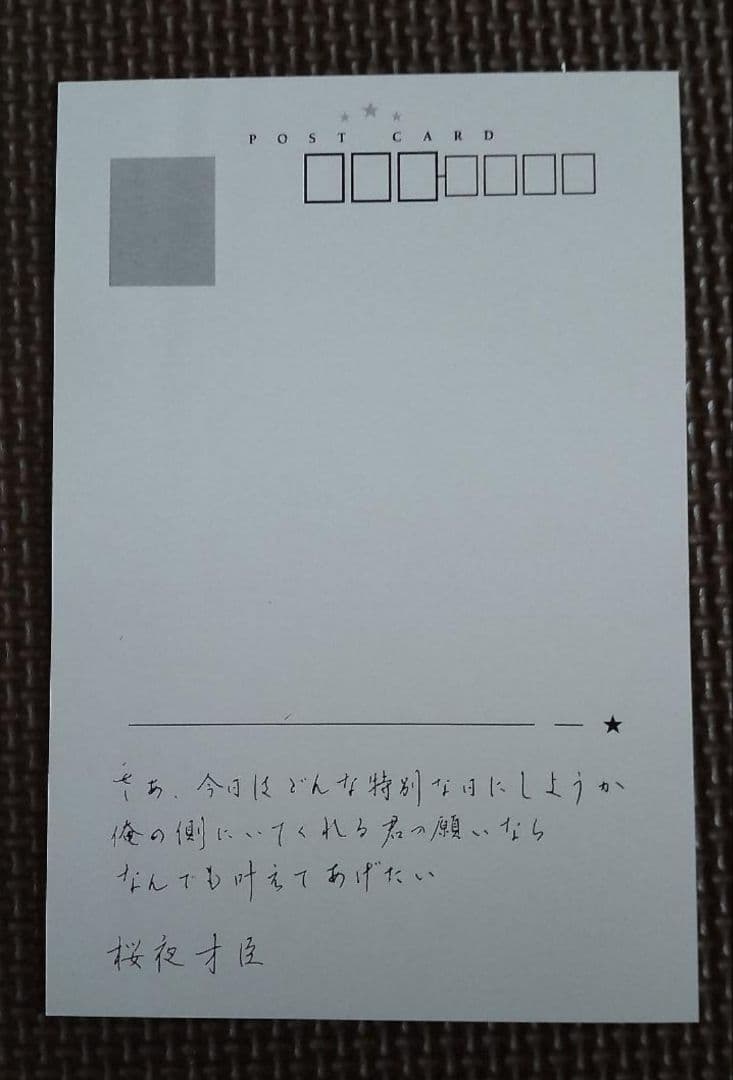 POST CARD
さあ、今日はどんな特別な日にしようか
俺の側にいてくれる君の願いなら
なんでも叶えてあげたい
桜夜才臣